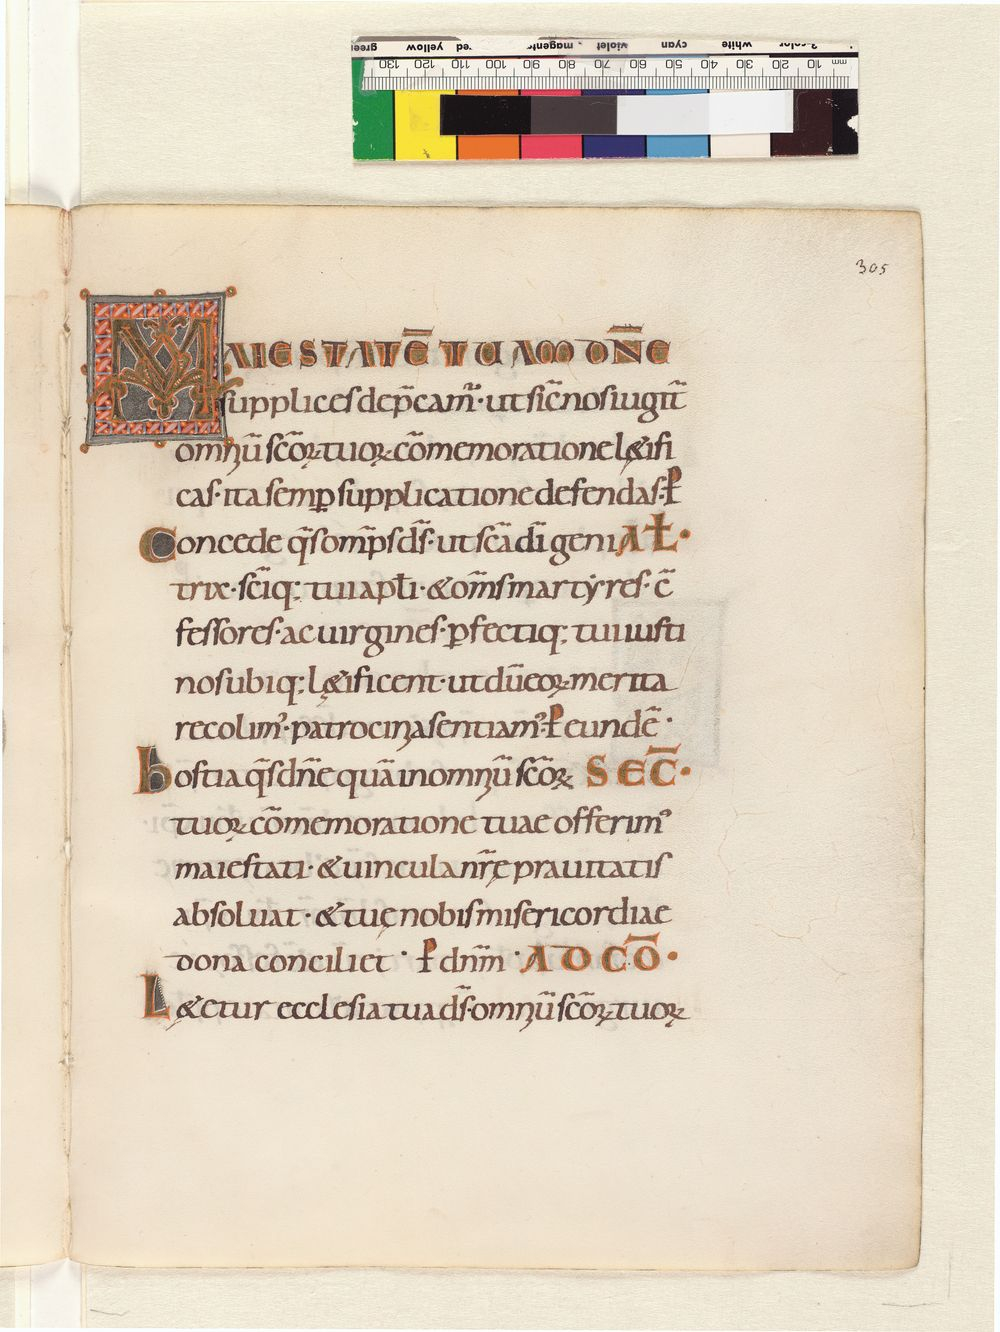 green yellow red magenta violet cyan white 3-color
130 120 110 100 90 80 70 60 50 40 30 20 10 mm
305
MAIESTATĒ TUAM DÑE
supplices dep̄cam̃· ut sic̄ nos iugit̃
omniū sc̄oꝝ tuoꝝ cōmemoratione l&ifi
cas· ita semꝑ supplicatione defendas· ꝑ
Concede q̄s omp̄s d̄s· ut sc̄a dī geni AƗ·
trix· sc̄iq; tui apƚi· & om̄s martẏres· c̄
fessores· ac uirgines· ꝑfectiq; tui iusti
nos ubiq; l&ificent· ut dū eoꝝ merita
recolim᾽· patrocinia sentiam᾽· ꝑ eundē·
hostia q̄s dñe quā in omniū sc̄oꝝ SEC̄·
tuoꝝ cōmemoratione tuae offerim᾽
maiestati· & uincula nr̄ę prauitatis
absoluat· & tuę nobis misericordiae
dona conciliet· ꝑ dnm̄· AD CŌ·
L&etur ecclesia tua d̄s· omniū sc̄oꝝ tuoꝝ